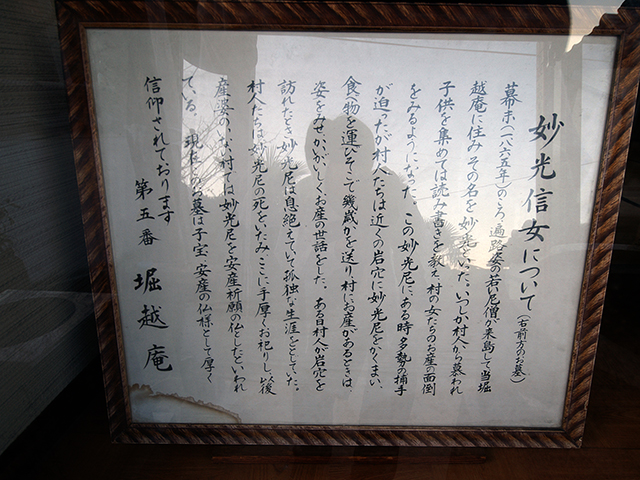 妙光信女について(右前方のお墓)
幕末(一八六五年)のころ、遍路姿の若い尼僧が来島して当堀
越庵に住みその名を妙光といった。いつしか村人から慕われ
子供を集めては読み書きを教え村の女たちのお産の面倒
をみるようになった。この妙光尼にある時多勢の捕手
が迫ったが村人たちは近くの岩穴に妙光尼をかくまい、
食物を運びそこで幾歳かを送り村にお産があるときは
姿をみせかいがいしくお産の世話をした。ある日村人が岩穴を
訪れたとき妙光尼は息絶えていて孤独な生涯をとじていた。
村人たちは妙光尼の死をいたみここに手厚くお祀りし以後
産婆のいない村では妙光尼を安産祈願の仏としたといわれ
ている。現在このお墓は子宝、安産の仏様として厚く
信仰されております
第五番 堀越庵